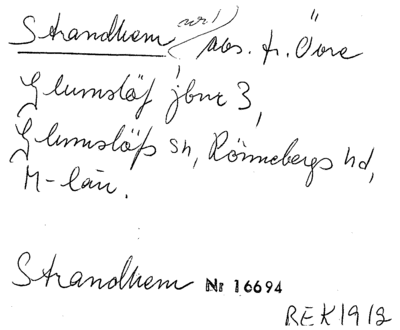 Strandhem avs. fr. Övre
Glumslöf jbnr 3,
Glumslöfs sn, Rönnebergs hd,
M-län.
Strandhem Nr 16694
REK 1912